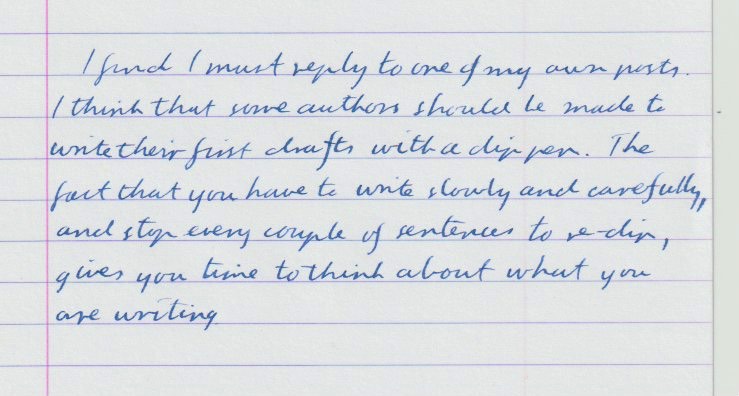 I find I must reply to one of my own posts.
I think that some authors should be made to
write their first drafts with a dip pen. The
fact that you have to write slowly and carefully,
and stop every couple of sentences to re-dip,
gives you time to think about what you
are writing